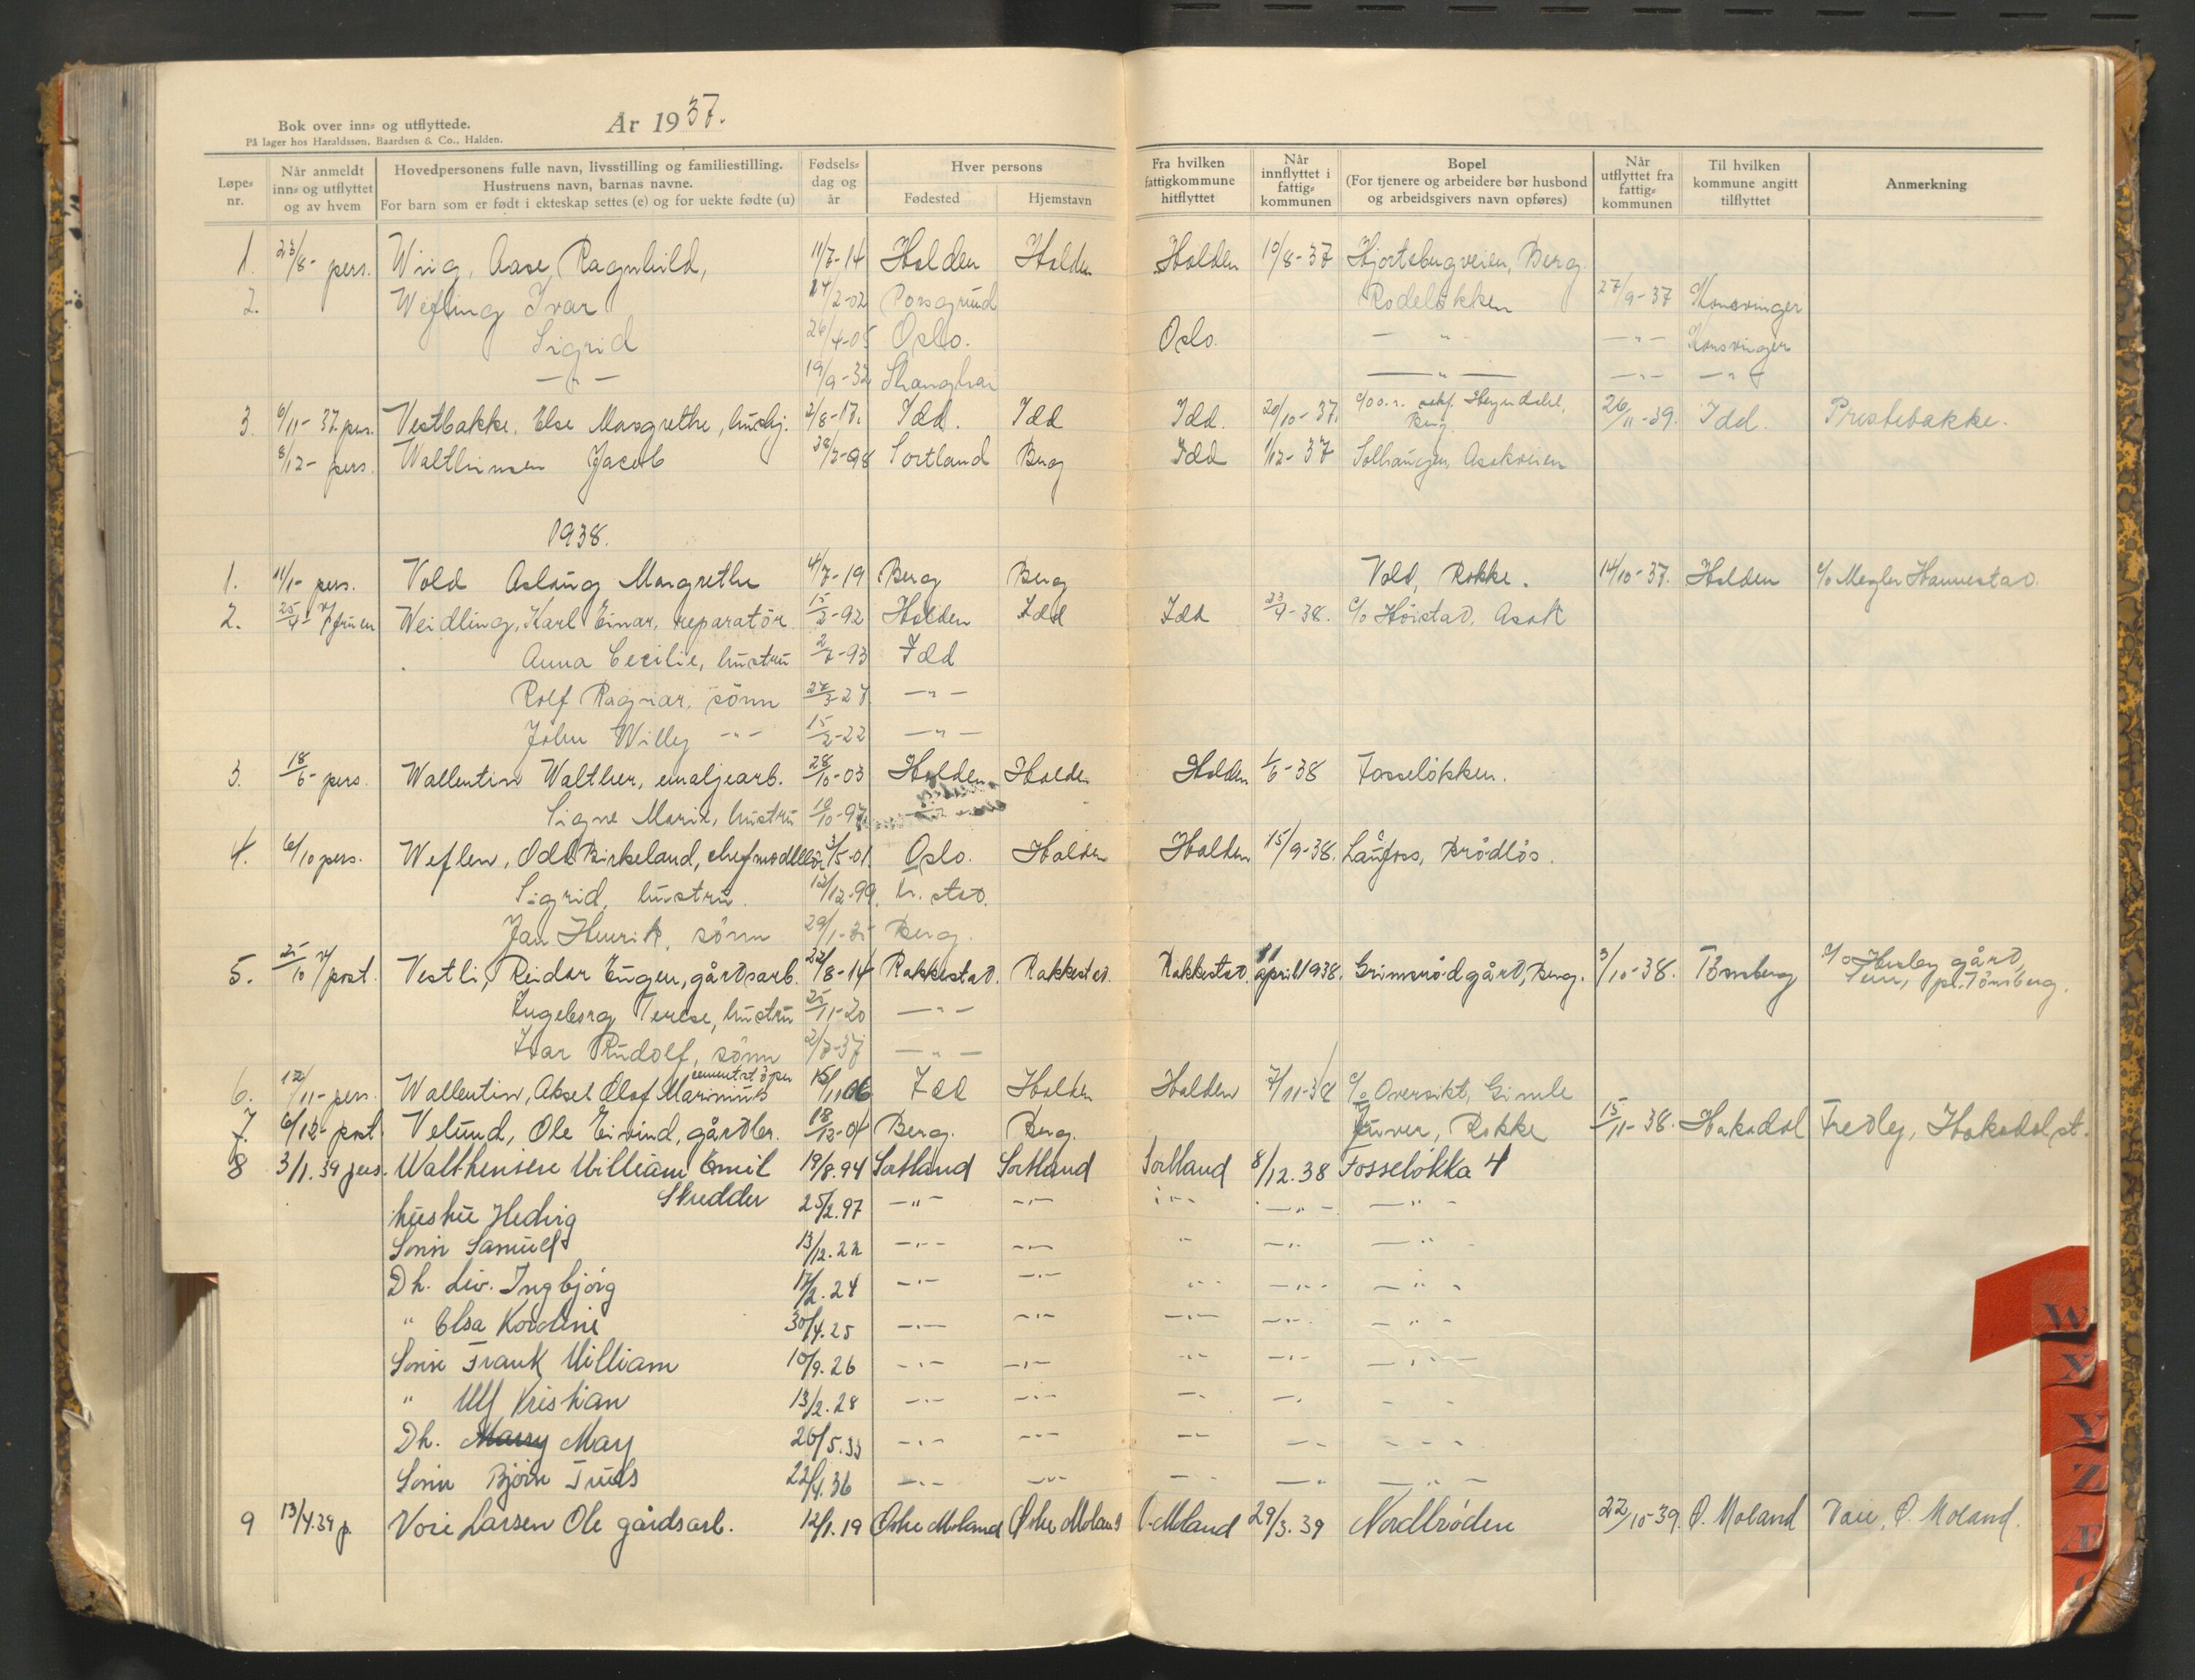 Bok over inn- og utflyttede.
På lager hos Haraldssøn, Baardsen & Co., Halden.
År 1937.
Løpe-nr. Når anmeldt inn- og utflyttet og av hvem Hovedpersonens fulle navn, livsstilling og familiestilling. Hustruens navn, barnas navne. For barn som er født i ekteskap settes (e) og for uekte fødte (u) Fødsels-dag og år Hver persons Fødested Hjemstavn Fra hvilken fattigkommune hitflyttet Når innflyttet i fattig-kommunen Bopel (For tjenere og arbeidere bør husbond og arbeidsgivers navn opføres) Når utflyttet fra fattig-kommunen Til hvilken kommune angitt tilflyttet Anmerkning
1. 23/8- pers. Wiig, Aase Ragnhild, 11/7-14 Halden Halden Halden 10/8-37 Hjortsbergveien, Berg
2. Wefling Ivar 24/2-02 Porsgrund Rødeløkken 27/9-37 Konsvinger
Sigrid 26/4-05 Oslo. Oslo. — " — " — Konsvinger
— " — 19/9-32 Shanghai — " — — " — — " —
3. 6/11-37. pers. Vestbakke. Else Margrethe, hushj. 2/8-17. Idd. Idd Idd. 20/10-37. Berg. 26/11-39. Idd. Prestebakke.
8/12- pers. Walthinsen Jacob 28/7-98 Sortland Berg Idd 1/12-37 Solhaugen, Asakveien
1938.
1. 11/1- pers. Vold Aslaug Margrethe 4/7-19 Berg Berg Vold, Rokke. 14/10-37. Halden c/o Megler Hannestad.
2. 25/4 v/fruen Weidling, Karl Einar, reparatør 15/2-92 Halden Idd Idd 23/4-38. c/o Høistad, Asak
Anna Cecilie, hustru 2/7-93 Idd
Rolf Ragnar, sønn 27/3-27 — " —
John Willy — " — 15/2-22 — " —
3. 18/6- pers. Wallentin Walther, emaljearb. 28/10-03 Halden Halden Halden 1/6-38 Fosseløkken.
Signe Marie, hustru 10/10-97
4. 6/10 pers. Weflen, Odd Birkeland, chefmodellør 3/5-01. Oslo. Halden Halden 15/9-38. Laufoss, Brødløs.
Sigrid, hustru. 12/12-99. kr. stad.
Jan Henrik, sønn 29/1-35 Berg.
5. 25/10 v/post. Vestli, Reidar Eugen, gårdsarb. 22/8-14 Rakkestad. Rakkestad. Rakkestad. 11 april 1938. Grimsrød gård, Berg. 3/10-38. Tönsberg c/o Hesby gård, Sem, pr. Tönsberg.
Ingeborg Terese, hustru 25/11-20 — " —
Ivar Rudolf, sønn 2/7-37 — " —
6. 12/11- pers. Wallentin, Aksel Olof Marinius cementstöper 15/11 06 Idd Halden Halden 7/11-38 c/o Oversikt, Gimle
7. 6/12- post. Velund, Ole Eivind, gårdbr. 18/12-04 Berg. Berg. Juver, Rokke 15/11-38. Hakadal Fredly, Hakadal st.
8 3/1.39 pers. Walthinsen William Emil 19/8.94 Sortland Sortland Sortland 8/12.38 Fosseløkka 4
Skredder
hustru Hedvig 25/2.97 — " — — " — — " — — " — — " —
Sønn Samuel 13/12.22 — " — — " — " — " — — " —
Dh. Liv. Ingbjørg 17/2.24 — " — — " — " — " — — " —
" Elsa Kordine 30/4.25 — " — — " — — " — — " — — " —
Sønn Frank William 10/9.26 — " — — " — — " — — " — — " —
" Ulf Kristian 13/2.28 — " — — " — — " — — " — — " —
Dh. Marry May 26/5.33 — " — — " — — " — — " — — " —
Sønn Bjørn Truls 22/4.36 — " — — " — — " — — " — — " —
9 13/4.39 p. Voie Larsen Ole gårdsarb. 12/1.19 Østre Moland Østre Moland Ø. Moland 29/3.39 Nordbrøden 22/10-39. Ø. Moland Voie, Ø. Moland.
W
X
Y
Z
Æ
Ø